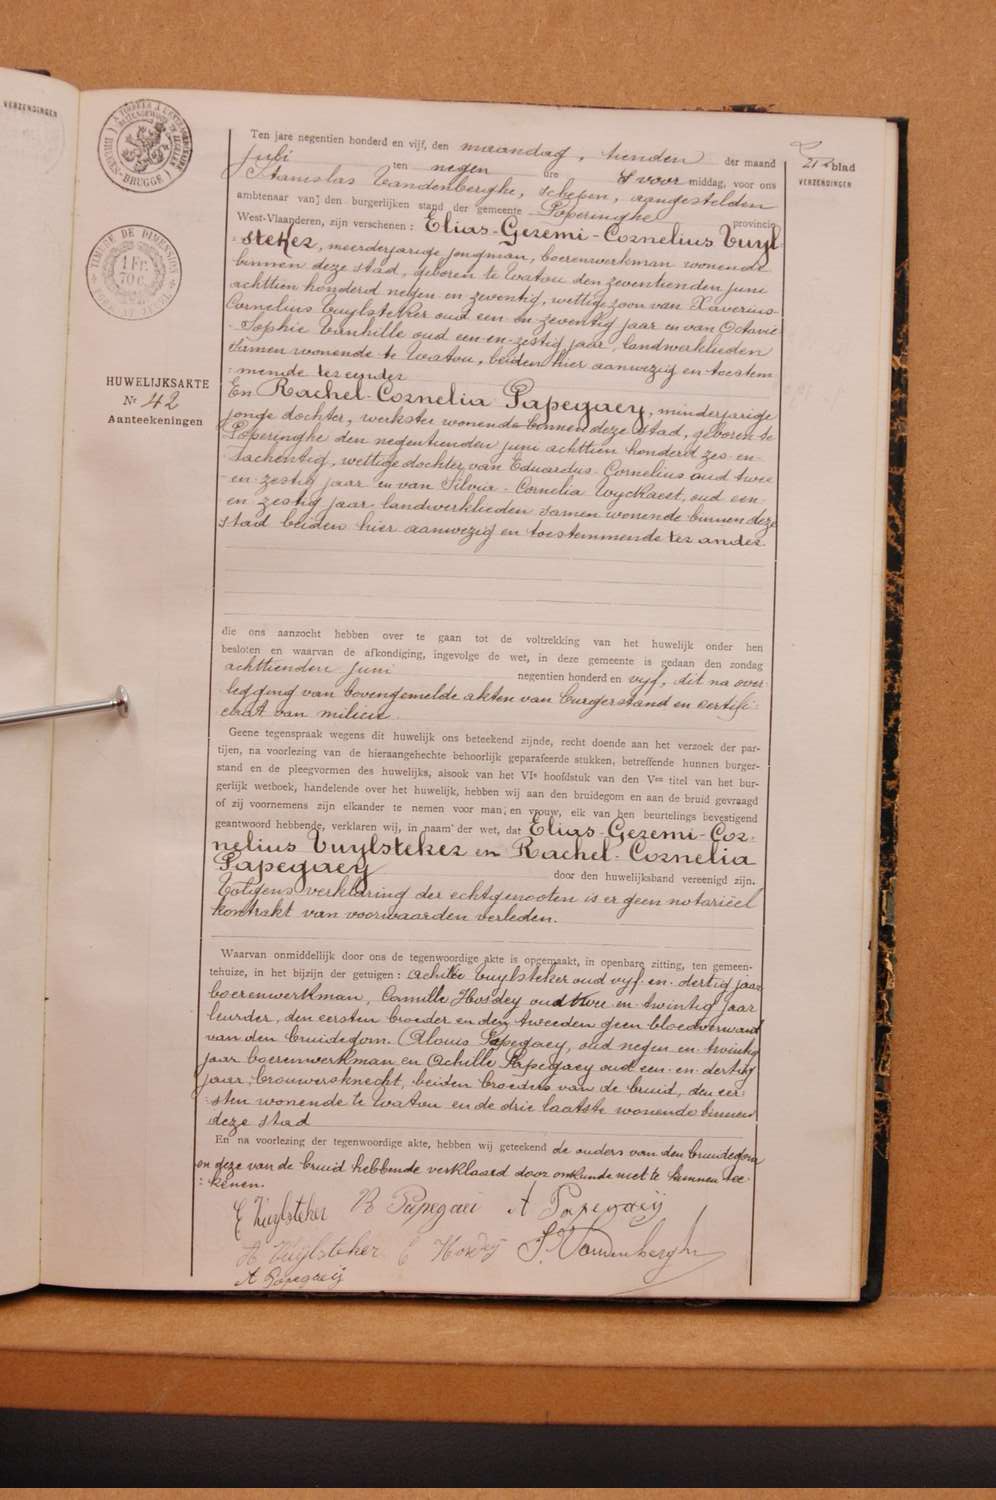 VERZENDINGEN
À TIMBRER À L'EXTRAORDINAIRE
BUITENGEWOON TE ZEGELEN
BRUGES - BRUGGE
21e blad
VERZENDINGEN
TIMBRE DE DIMENSION
1 Fr.
70 c.
HUWELIJKSAKTE
Nr 42
Aanteekeningen
Ten jare negentien honderd en vijf, den maandag, tienden der maand
juli ten negen ure 's voor middag, voor ons
Stanislas Vandenberghe, schepen, aangestelden
ambtenaar van den burgerlijken stand der gemeente Poperinghe provincie
West-Vlaanderen, zijn verschenen : Elias-Geremi-Cornelius Vuyl-
:steker, meerderjarige jongman, boerenwerkman wonende
binnen deze stad, geboren te Watou den zeventienden juni
achttien honderd negen-en-zeventig, wettige zoon van Xaverius-
Cornelius Vuylsteker oud een-en-zeventig jaar en van Octavie-
Sophie Vanhille oud een-en-zestig jaar, landwerklieden
samen wonende te Watou, beiden hier aanwezig en toestem
:mende ter eender
En Rachel-Cornelia Papegaey, minderjarige
jonge dochter, werkster wonende binnen deze stad, geboren te
Poperinghe den negentienden juni achttien honderd zes-en-
tachentig, wettige dochter van Eduardus-Cornelius oud twee
en-zestig jaar en van Silvia-Cornelia Wyckaert, oud een-
en zestig jaar landwerklieden samen wonende binnen deze
stad beiden hier aanwezig en toestemmende ter ander
die ons aanzocht hebben over te gaan tot de voltrekking van het huwelijk onder hen
besloten en waarvan de afkondiging, ingevolge de wet, in deze gemeente is gedaan den zondag
achttienden juni negentien honderd en vijf, dit na over-
legging van bovengemelde akten van burgerstand en certifi-
caat van milicie.
Geene tegenspraak wegens dit huwelijk ons beteekend zijnde, recht doende aan het verzoek der par-
tijen, na voorlezing van de hieraangehechte behoorlijk geparafeerde stukken, betreffende hunnen burger-
stand en de pleegvormen des huwelijks, alsook van het VIe hoofdstuk van den Ven titel van het bur-
gerlijk wetboek, handelende over het huwelijk, hebben wij aan den bruidegom en aan de bruid gevraagd
of zij voornemens zijn elkander te nemen voor man en vrouw, elk van hen beurtelings bevestigend
geantwoord hebbende, verklaren wij, in naam der wet, dat Elias-Geremi-Cor-
nelius Vuylsteker en Rachel-Cornelia
Papegaey door den huwelijksband vereenigd zijn.
Volgens verklaring der echtgenooten is er geen notariëel
kontrakt van voorwaarden verleden.
Waarvan onmiddellijk door ons de tegenwoordige akte is opgemaakt, in openbare zitting, ten gemeen-
tehuize, in het bijzijn der getuigen : Achille Vuylsteker oud vijf-en-dertig jaar
boerenwerkman, Camille Hosdey oud twee-en-twintig jaar
leurder, den eersten broeder en den tweeden geen bloedverwand
van den bruidegom. Aloïs Papegaey, oud negen-en-twintig
jaar boerenwerkman en Achille Papegaey oud een-en-dertig
jaar, brouwersknecht, beiden broeders van de bruid, den eer-
:sten wonende te Watou en de drie laatste wonende binnen
deze stad
En na voorlezing der tegenwoordige akte, hebben wij geteekend de ouders van den bruidegom
en deze van de bruid hebbende verklaard door onkunde niet te kunnen tee-
:kenen.
E Vuylsteker R Papegaei A Papegaeij
A Vuylsteker C Hosdey S. Vandenberghe
A Papegaeij